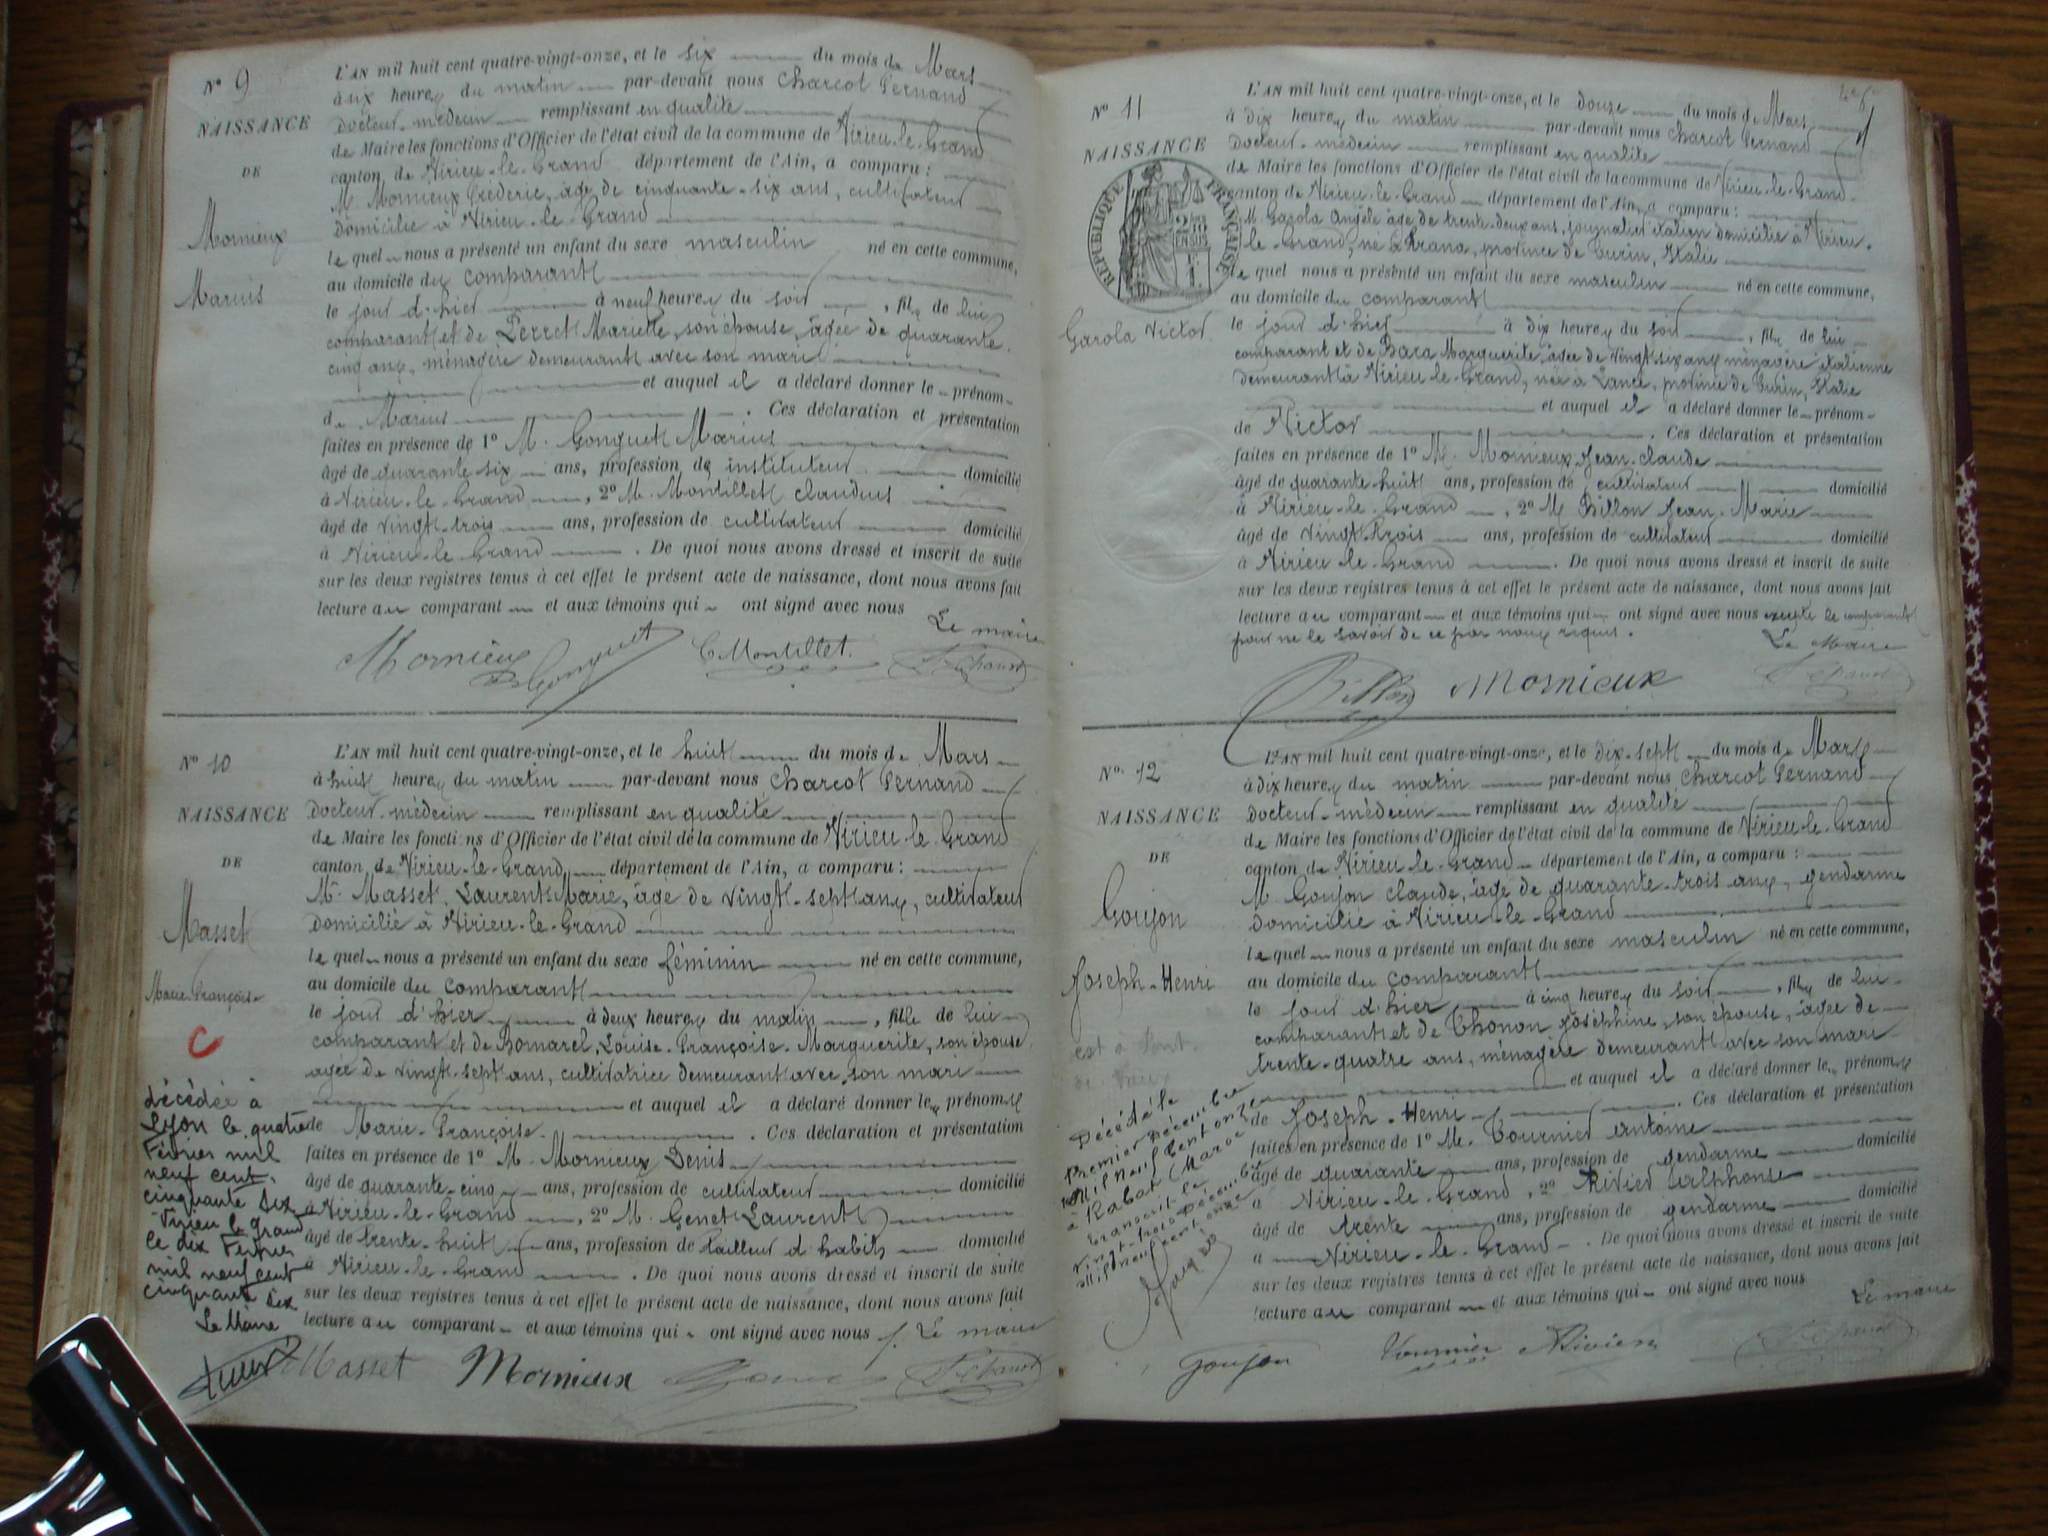 N° 9
NAISSANCE
DE
Mornieux
Marius
L'AN mil huit cent quatre-vingt-onze, et le six du mois de Mars
à six heures du matin par-devant nous Charcot Fernand
Docteur-médecin remplissant en qualité
de Maire les fonctions d'Officier de l'état civil de la commune de Virieu-le-Grand
canton de Virieu-le-Grand département de l'Ain, a comparu :
M. Mornieux Frédéric, âgé de cinquante-six ans, cultivateur
domicilié à Virieu-le-Grand
lequel nous a présenté un enfant du sexe masculin né en cette commune,
au domicile du comparant
le jour d'hier à neuf heures du soir, fils de lui
comparant et de Perret Mariette, son épouse, âgée de quarante
cinq ans, ménagère demeurant avec son mari
et auquel il a déclaré donner le prénom
de Marius. Ces déclaration et présentation
faites en présence de 1° M. Gonguet Marius
âgé de quarante six ans, profession de instituteur domicilié
à Virieu-le-Grand, 2° M. Montillet Claudius
âgé de vingt-trois ans, profession de cultivateur domicilié
à Virieu-le-Grand. De quoi nous avons dressé et inscrit de suite
sur les deux registres tenus à cet effet le présent acte de naissance, dont nous avons fait
lecture au comparant et aux témoins qui ont signé avec nous
Le maire
Mornieux Gonguet C. Montillet
N° 10
NAISSANCE
DE
Masset
Marie-Françoise
C
décédée à
Lyon le quatre
Février mil
neuf cent
cinquante six
Virieu le Grand
le dix Février
mil neuf cent
cinquante six
Le Maire
L'AN mil huit cent quatre-vingt-onze, et le huit du mois de Mars
à huit heures du matin par-devant nous Charcot Fernand
Docteur-médecin remplissant en qualité
de Maire les fonctions d'Officier de l'état civil de la commune de Virieu-le-Grand
canton de Virieu-le-Grand département de l'Ain, a comparu :
M. Masset, Laurent Marie, âgé de vingt-sept ans, cultivateur
domicilié à Virieu-le-Grand
lequel nous a présenté un enfant du sexe féminin né en cette commune,
au domicile du comparant
le jour d'hier à deux heures du matin, fille de lui
comparant et de Bomarel, Louise-Françoise-Marguerite, son épouse
agée de vingt-sept ans, cultivatrice demeurant avec son mari
et auquel il a déclaré donner les prénoms
de Marie-Françoise. Ces déclaration et présentation
faites en présence de 1° M. Mornieux Denis
âgé de quarante-cinq ans, profession de cultivateur domicilié
à Virieu-le-Grand, 2° M. Genet Laurent
âgé de trente-huit ans, profession de tailleur d'habits domicilié
à Virieu-le-Grand. De quoi nous avons dressé et inscrit de suite
sur les deux registres tenus à cet effet le présent acte de naissance, dont nous avons fait
lecture au comparant et aux témoins qui ont signé avec nous Le maire
Masset Mornieux
N° 11
NAISSANCE
RÉPUBLIQUE FRANÇAISE
Garola Victor
L'AN mil huit cent quatre-vingt-onze, et le douze du mois de Mars
à dix heures du matin par-devant nous Charcot Fernand
Docteur-médecin remplissant en qualité
de Maire les fonctions d'Officier de l'état civil de la commune de Virieu-le-Grand
canton de Virieu-le-Grand département de l'Ain, a comparu :
M. Garola Angèle âgé de trente-deux ans, journalier italien domicilié à Virieu-
le-Grand, né à province de Turin, Italie
lequel nous a présenté un enfant du sexe masculin né en cette commune,
au domicile du comparant
le jour d'hier à dix heures du soir, fils de lui
comparant et de Bara Marguerite, âgée de vingt-six ans ménagère italienne
demeurant à Virieu-le-Grand, née à province de Turin, Italie
et auquel il a déclaré donner le prénom
de Victor. Ces déclaration et présentation
faites en présence de 1° M. Mornieux Jean-Claude
âgé de quarante-huit ans, profession de cultivateur domicilié
à Virieu-le-Grand, 2° M. Billon Jean-Marie
âgé de vingt-trois ans, profession de cultivateur domicilié
à Virieu-le-Grand. De quoi nous avons dressé et inscrit de suite
sur les deux registres tenus à cet effet le présent acte de naissance, dont nous avons fait
lecture au comparant et aux témoins qui ont signé avec nous excepté le comparant
pour ne le savoir de ce par nous requis.
Le Maire
Billon Mornieux
N° 12
NAISSANCE
DE
Goujon
Joseph-Henri
Décédé le
Premier Décembre
Mil neuf cent onze
à Rabat (Maroc)
transcrit le
vingt-trois Décembre
Mil neuf cent onze
L'AN mil huit cent quatre-vingt-onze, et le dix-sept du mois de Mars
à dix heures du matin par-devant nous Charcot Fernand
Docteur-médecin remplissant en qualité
de Maire les fonctions d'Officier de l'état civil de la commune de Virieu-le-Grand
canton de Virieu-le-Grand département de l'Ain, a comparu :
M. Goujon Claude, âgé de quarante-trois ans, gendarme
domicilié à Virieu-le-Grand
lequel nous a présenté un enfant du sexe masculin né en cette commune,
au domicile du comparant
le jour d'hier à cinq heures du soir, fils de lui
comparant et de Thonon Joséphine, son épouse, âgée de
trente-quatre ans, ménagère demeurant avec son mari
et auquel il a déclaré donner les prénoms
de Joseph-Henri. Ces déclaration et présentation
faites en présence de 1° M. Tournier Antoine
âgé de quarante ans, profession de gendarme domicilié
à Virieu-le-Grand, 2° Rivier Alphonse
âgé de trente ans, profession de gendarme domicilié
à Virieu-le-Grand. De quoi nous avons dressé et inscrit de suite
sur les deux registres tenus à cet effet le présent acte de naissance, dont nous avons fait
lecture au comparant et aux témoins qui ont signé avec nous
Le maire
Goujon Tournier Rivier